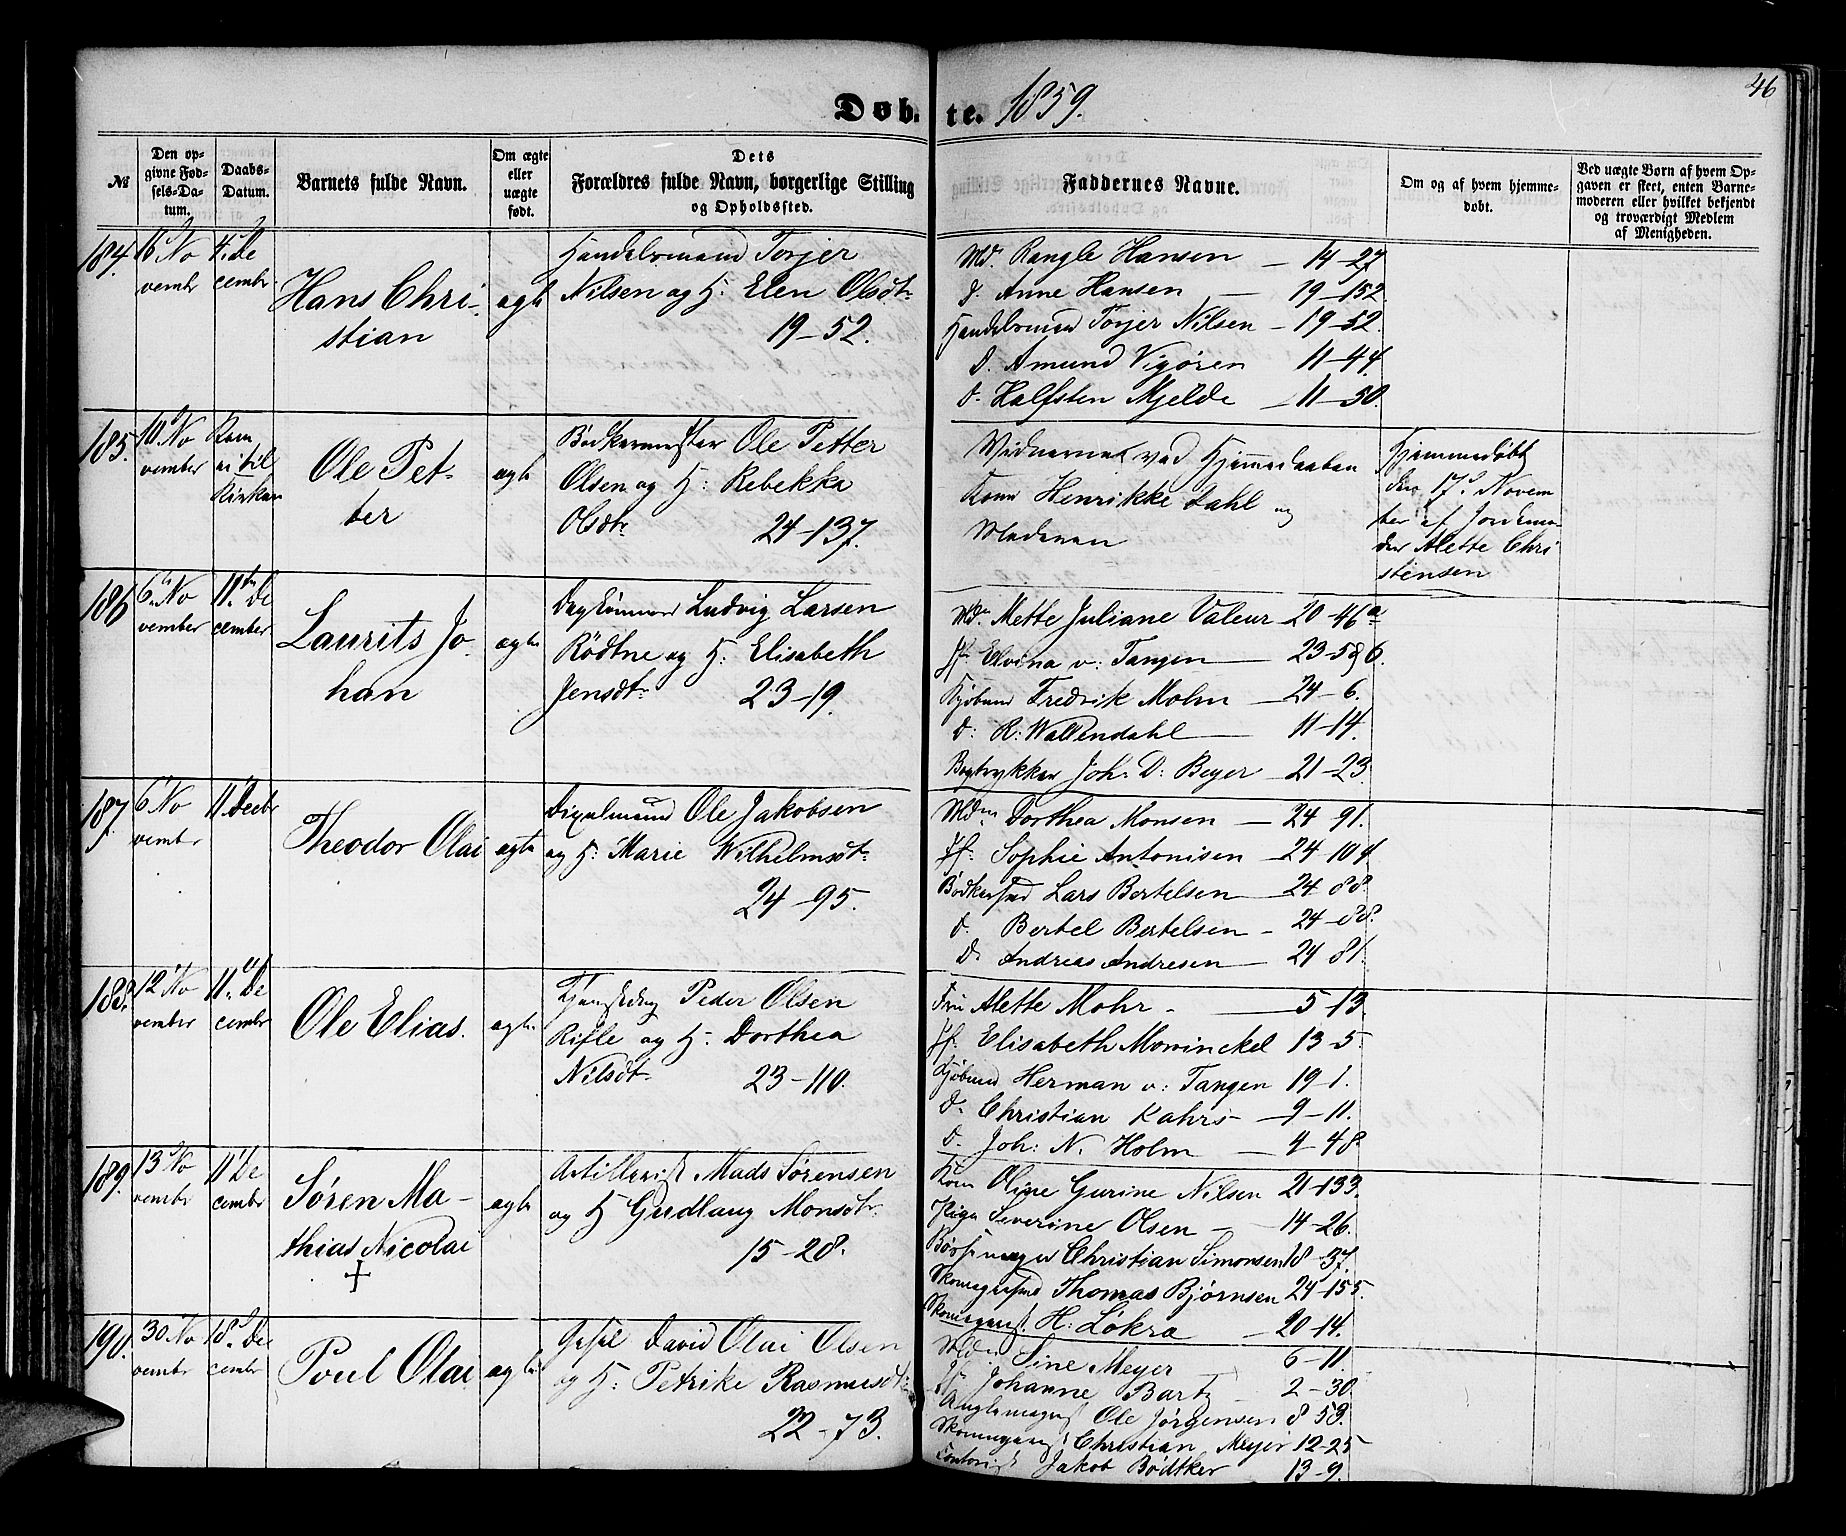 46
Døbte. 1859.
№
Den opgivne Fødsels-Datum.
Daabs-Datum.
Barnets fulde Navn.
Om ægte eller uægte født.
Dets Forældres fulde Navn, borgerlige Stilling og Opholdssted.
Faddernes Navne.
Om og af hvem hjemmedøbt.
Ved uægte Børn af hvem Opgaven er skeet, enten Barnemoderen eller hvilket bekjendt og troværdigt Medlem af Menigheden.
184.
16 No
vembr
4. De
cembr
Hans Chri-
stian
ægte
Handelsmand Torjer
Nilsen og H. Elen Olsdtr
19-52.
Md. Rangle Hansen — 14-27
J. Anne Hansen — 19-152.
Handelsmand Torjer Nilsen — 19-52.
D. Amund Vigøren 11-44
D. Halfsten Mjelde — 11-30.
185.
10. No
vember
Kom
ei til
Kirken
Ole Pet-
ter
ægte
Bødkermester Ole Petter
Olsen og H: Rebekka
Olsdtr 24-137.
Vidnerne ved Hjemmedaaben
Kone Henrikke Dahl og
Moderen
Hjemmedøbt
den 17d Novem
ber af Jordemo-
der Alette Chri
stensen
186
6. No
vember
11. De
cember
Laurits Jo-
han
ægte
Ludvig Larsen
Rödtne og H: Elisabeth
Jensdtr 23-19.
Mdm Mette Juliane Valeur 20-46a
Jf. Elvina v: Tangen — 23-596.
Kjøbmd Fredrik Mohn — 24-6.
D: R: Wallendahl — 11-14.
Bogtrykker Joh: D: Beyer — 21-23
187.
6 No
vembr
11. Decbr
Theodor Olai
ægte
Dixelmand Ole Jakobsen
og H: Marie Wilhelmsdtr
24-95.
Mdm Dorthea Monsen — 24-91.
Jf: Sophie Antonisen — 24-104
Bødkersvd Lars Bertelsen — 24-88
D. Bertel Bertelsen — 24-88.
D. Andreas Andresen — 24 81.
188.
12 No
vember
11. De
cembr
Ole Elias.
ægte
Peder Olsen
Rifle og H: Dorthea
Nilsdtr 23-110.
Fru Alette Mohr — 5-13.
Jf. Elisabeth Mowinckel 13-5.
Kjøbmd Herman v: Tangen 19-1.
D. Christian Kahrs — 9-11.
D. Joh: N. Holm — 4-48.
189.
13 No
vembr
11 De
cember
Sören Ma-
thias Nicolai
+
ægte
Artillerist Mads Sörensen
og H Gudlaug Monsdtr
15-28.
Kone Oline Gurine Nilsen 21-133.
Pige Severine Olsen — 14-26.
Børsemager Christian Simonsen 18-37.
Skomagersvd Thomas Bjørnsen 24-155.
Skomagers. H: Løkra — 20-14.
190.
30. No
vembr
18. De
cembr
Poul Olai
ægte
David Olai Olsen
og H: Petrike Rasmusdtr
22-73.
Mdm Sine Meyer 6-11.
Jf. Johanne Bartz 2-30.
Ole Jörgensen 8 58.
Christian Meyer 12-25
Kontorist Jakob Bødtker 13-9.